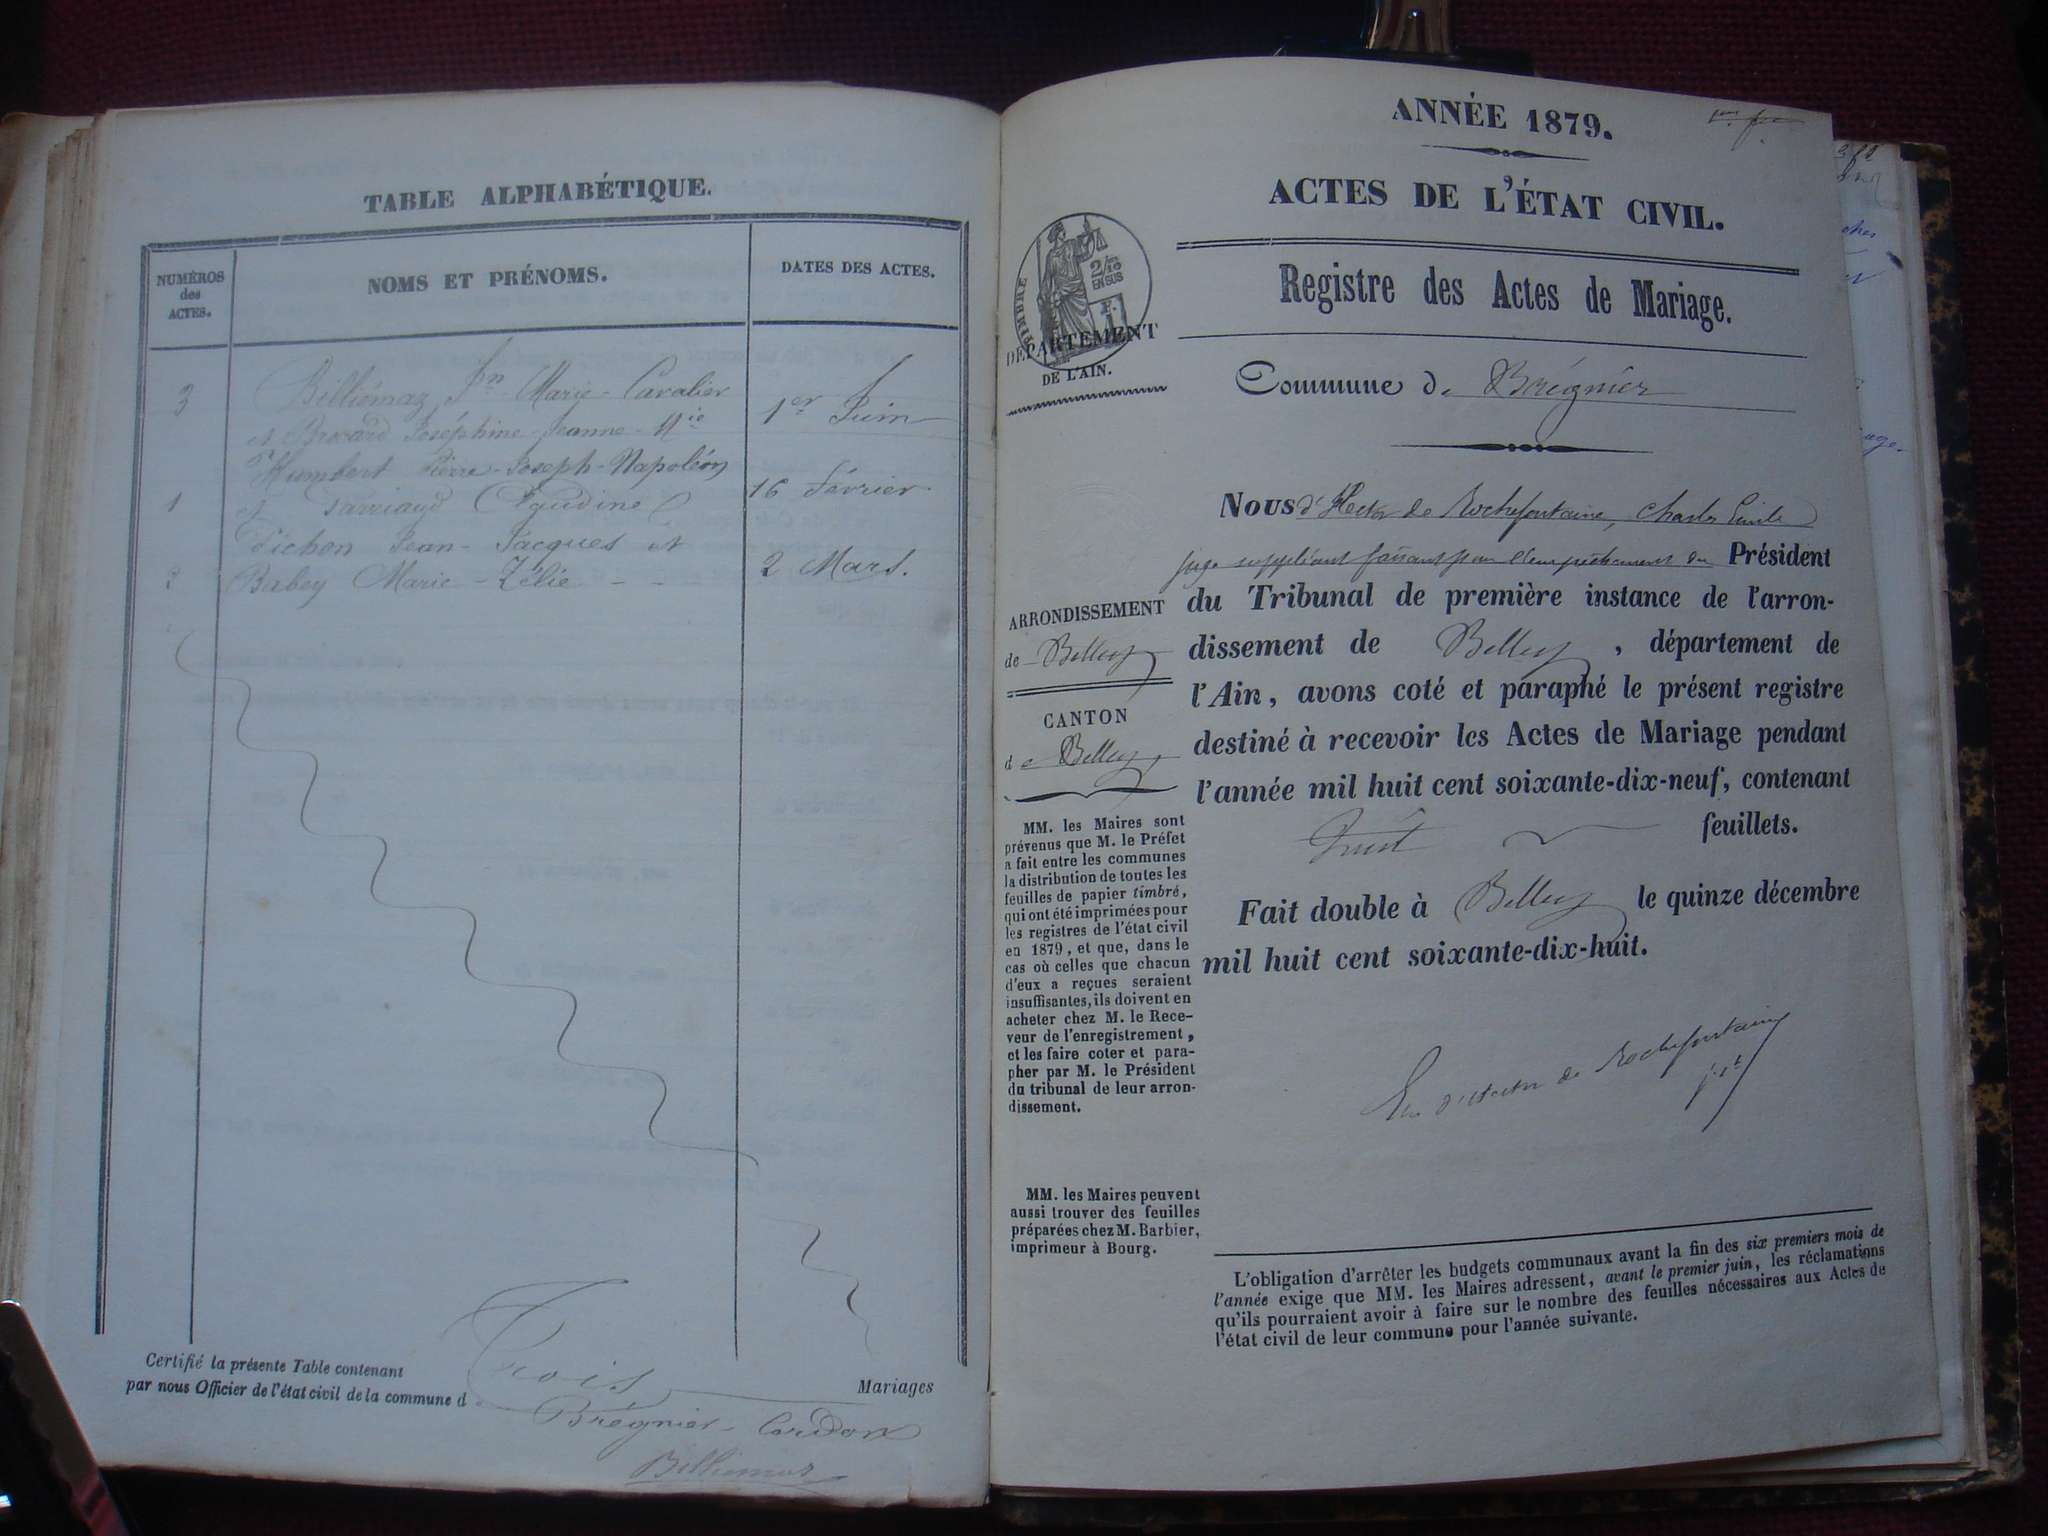 TABLE ALPHABÉTIQUE.
NUMÉROS
des
ACTES.
NOMS ET PRÉNOMS.
DATES DES ACTES.
3
Billiémaz Jn-Marie-Cavalier
et Brocard Joséphine-Jeanne-Mie
1er Juin
Humbert Pierre-Joseph-Napoléon
1
et Claudine
16 Février
Pichon Jean-Jacques et
2
Babey Marie-Zélie - -
2 Mars.
Certifié la présente Table contenant
Trois
Mariages
par nous Officier de l'état civil de la commune d
Brégnier-Cordon
Billiemaz
ANNÉE 1879.
ACTES DE L'ÉTAT CIVIL.
TIMBRE
2/10
EN SUS
Registre des Actes de Mariage.
DÉPARTEMENT
DE L'AIN.
Commune de Brégnier
Nous d'Hector de Rochefontaine, Charles Emile
juge suppléant faisant pour l'empêchement du Président
du Tribunal de première instance de l'arron-
dissement de Belley, département de
l'Ain, avons coté et paraphé le présent registre
destiné à recevoir les Actes de Mariage pendant
l'année mil huit cent soixante-dix-neuf, contenant
huit feuillets.
Fait double à Belley le quinze décembre
mil huit cent soixante-dix-huit.
d'Hector de Rochefontaine
ARRONDISSEMENT
de Belley
CANTON
de Belley
MM. les Maires sont
prévenus que M. le Préfet
a fait entre les communes
la distribution de toutes les
feuilles de papier timbré,
qui ont été imprimées pour
les registres de l'état civil
en 1879, et que, dans le
cas où celles que chacun
d'eux a reçues seraient
insuffisantes, ils doivent en
acheter chez M. le Rece-
veur de l'enregistrement,
et les faire coter et para-
pher par M. le Président
du tribunal de leur arron-
dissement.
MM. les Maires peuvent
aussi trouver des feuilles
préparées chez M. Barbier,
imprimeur à Bourg.
L'obligation d'arrêter les budgets communaux avant la fin des six premiers mois de
l'année exige que MM. les Maires adressent, avant le premier juin, les réclamations
qu'ils pourraient avoir à faire sur le nombre des feuilles nécessaires aux Actes de
l'état civil de leur commune pour l'année suivante.